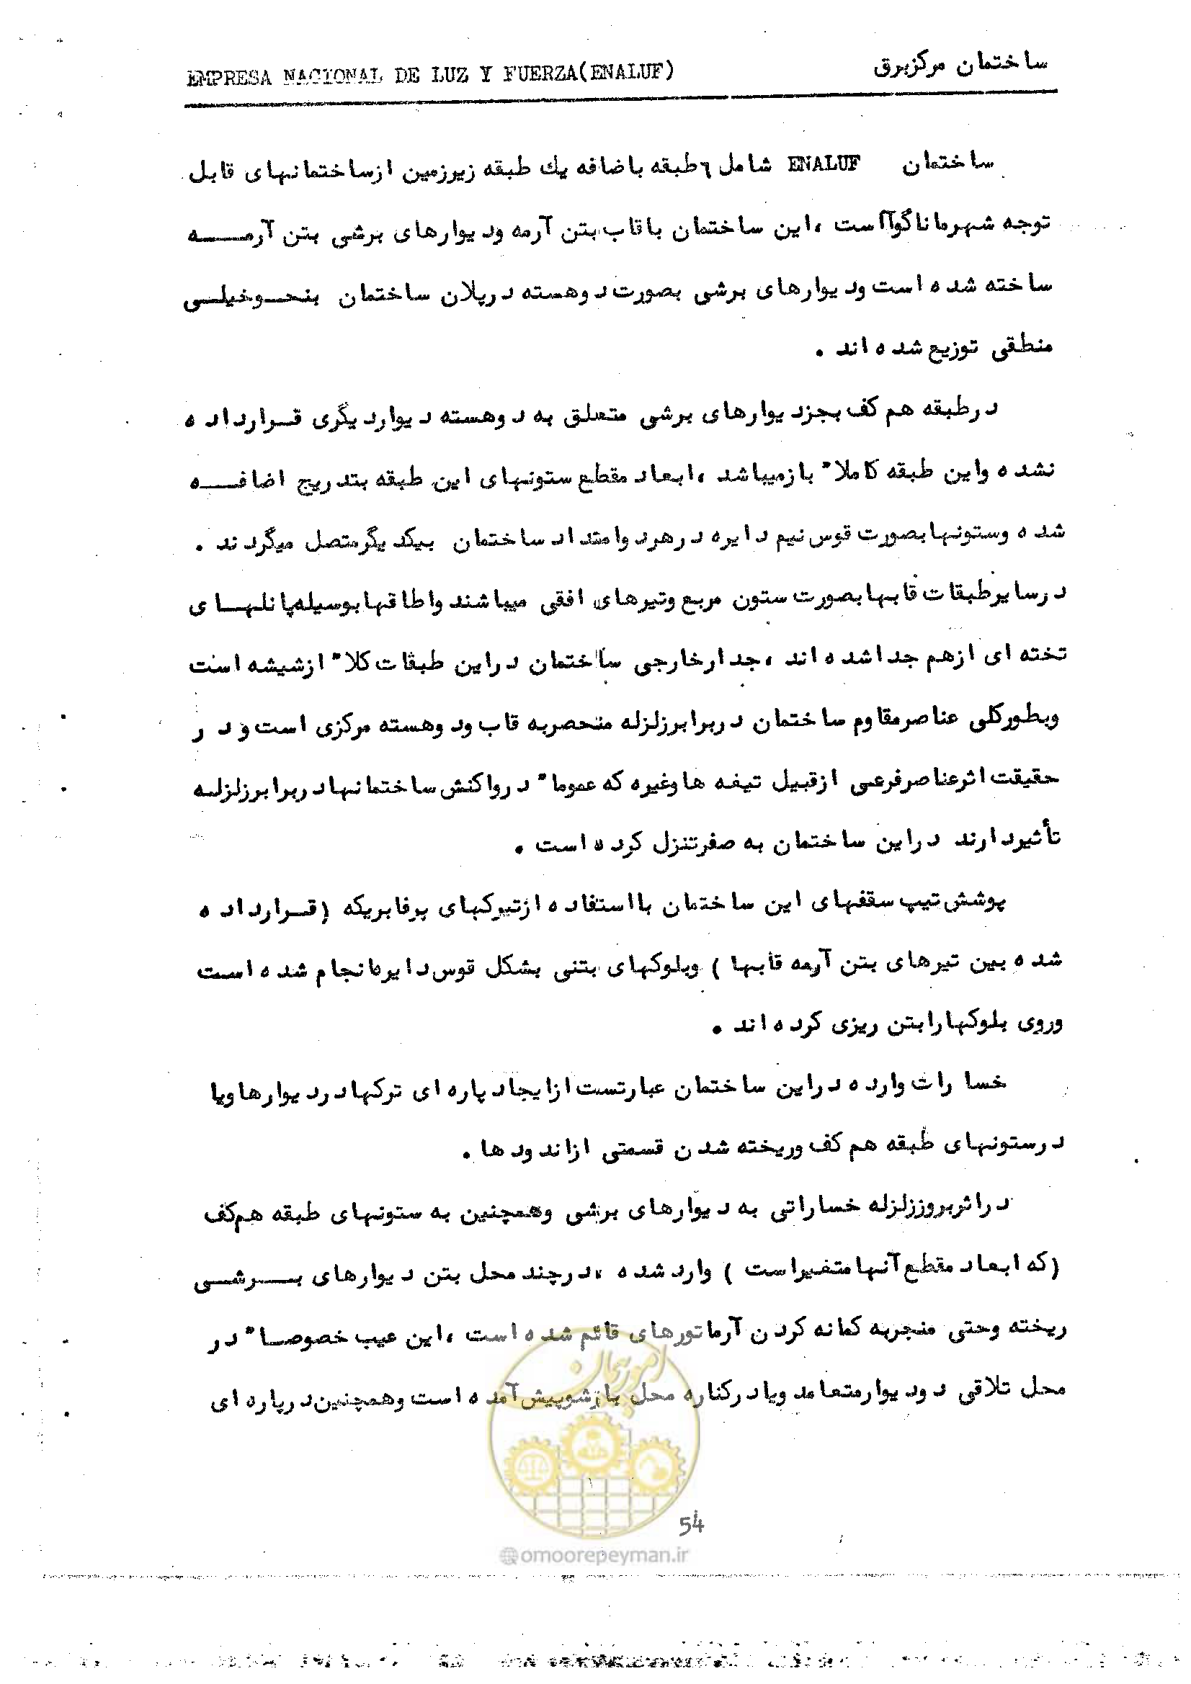 ساختمان مرکزبرق
EMPRESA NACIONAL DE LUZ Y FUERZA(ENALUF)
ساختمان ENALUF شامل ٦طبقه باضافه یك طبقه زیرزمین ازساختمانهای قابل
توجه شهرماناگوآاست ،این ساختمان باقاب بتن آرمه ودیوارهای برشی بتن آرمــه
ساخته شده است ودیوارهای برشی بصورت دوهسته درپلان ساختمان بنحـوخیلـی
منطقی توزیع شده اند .
درطبقه هم کف بجزدیوارهای برشی متعلق به دوهسته دیواردیگری قـرارداده
نشده واین طبقه کاملا" بازمیباشد ،ابعاد مقطع ستونهای این طبقه بتدریج اضافــه
شده وستونهابصورت قوس نیم دایره درهردوامتداد ساختمان بیکدیگرمتصل میگردند .
درسایرطبقات قابهابصورت ستون مربع وتیرهای افقی میباشند واطاقهابوسیله‌پانلهـای
تخته ای ازهم جداشده اند ،جدارخارجی ساختمان دراین طبقات کلا" ازشیشه است
وبطورکلی عناصرمقاوم ساختمان دربرابرزلزله منحصربه قاب ودوهسته مرکزی است و در
حقیقت اثرعناصرفرعی ازقبیل تیغه هاوغیره که عموما" درواکنش ساختمانهادربرابرزلزلـه
تأثیردارند دراین ساختمان به صفرتنزل کرده است .
پوشش تیپ سقفهای این ساختمان بااستفاده ازتیرکهای پرفابریکه (قـرارداده
شده بین تیرهای بتن آرمه قابها ) وبلوکهای بتنی بشکل قوس دایره‌انجام شده است
وروی بلوکهارابتن ریزی کرده اند .
خسارات وارده دراین ساختمان عبارتست ازایجاد پاره ای ترکهادردیوارهاویا
درستونهای طبقه هم کف وریخته شدن قسمتی ازاندودها .
دراثربروززلزله خساراتی به دیوارهای برشی وهمچنین به ستونهای طبقه هم‌کف
(که ابعاد مقطع آنهامتغیراست ) واردشده ،درچند محل بتن دیوارهای بــرشـی
ریخته وحتی منجربه کمانه کردن آرماتورهای قائم شده است ،این عیب خصوصـا" در
محل تلاقی دودیوارمتعامد ویادرکناره محل بازشوپیش‌آمده است وهمچنین‌درپاره ای
امور پیمان
54
@omoorepeyman.ir